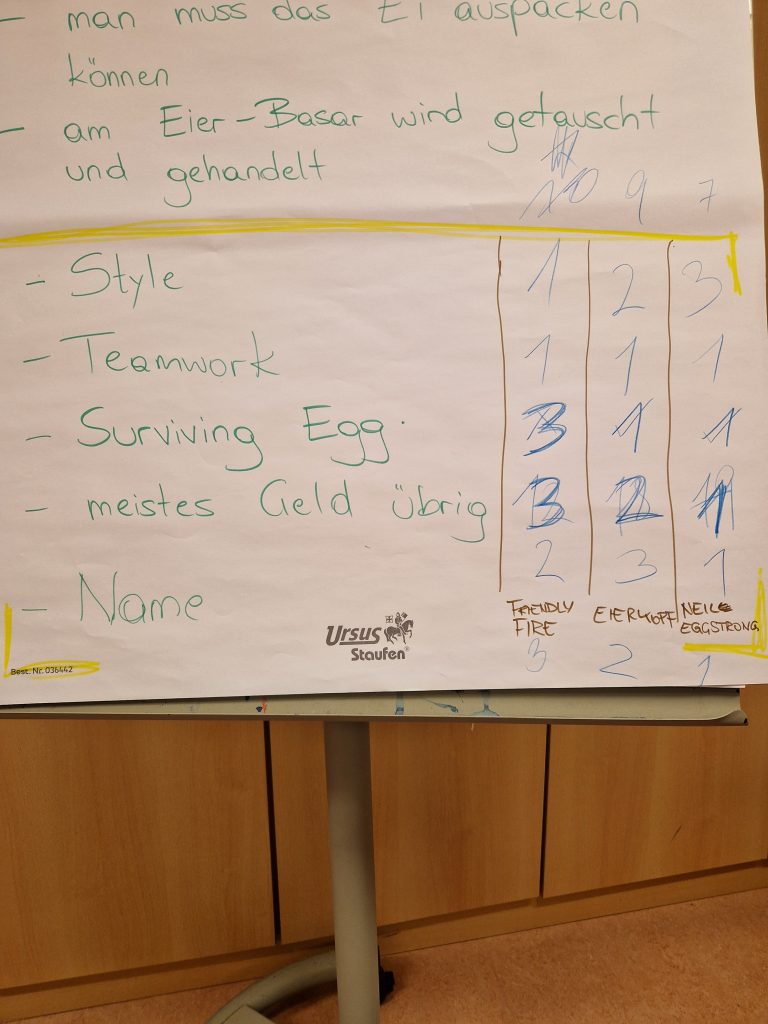 - man muss das Ei auspacken
können
- am Eier-Basar wird getauscht
und gehandelt
10 9 7
- Style 1 2 3
- Teamwork 1 1 1
- Surviving Egg. 3 1 1
- meistes Geld übrig 3 2 1
2 3 1
- Name
FRIENDLY FIRE
EIERKOPF
NEIL EGGSTRONG
3 2 1
Ursus
Staufen®
Best. Nr. 036442